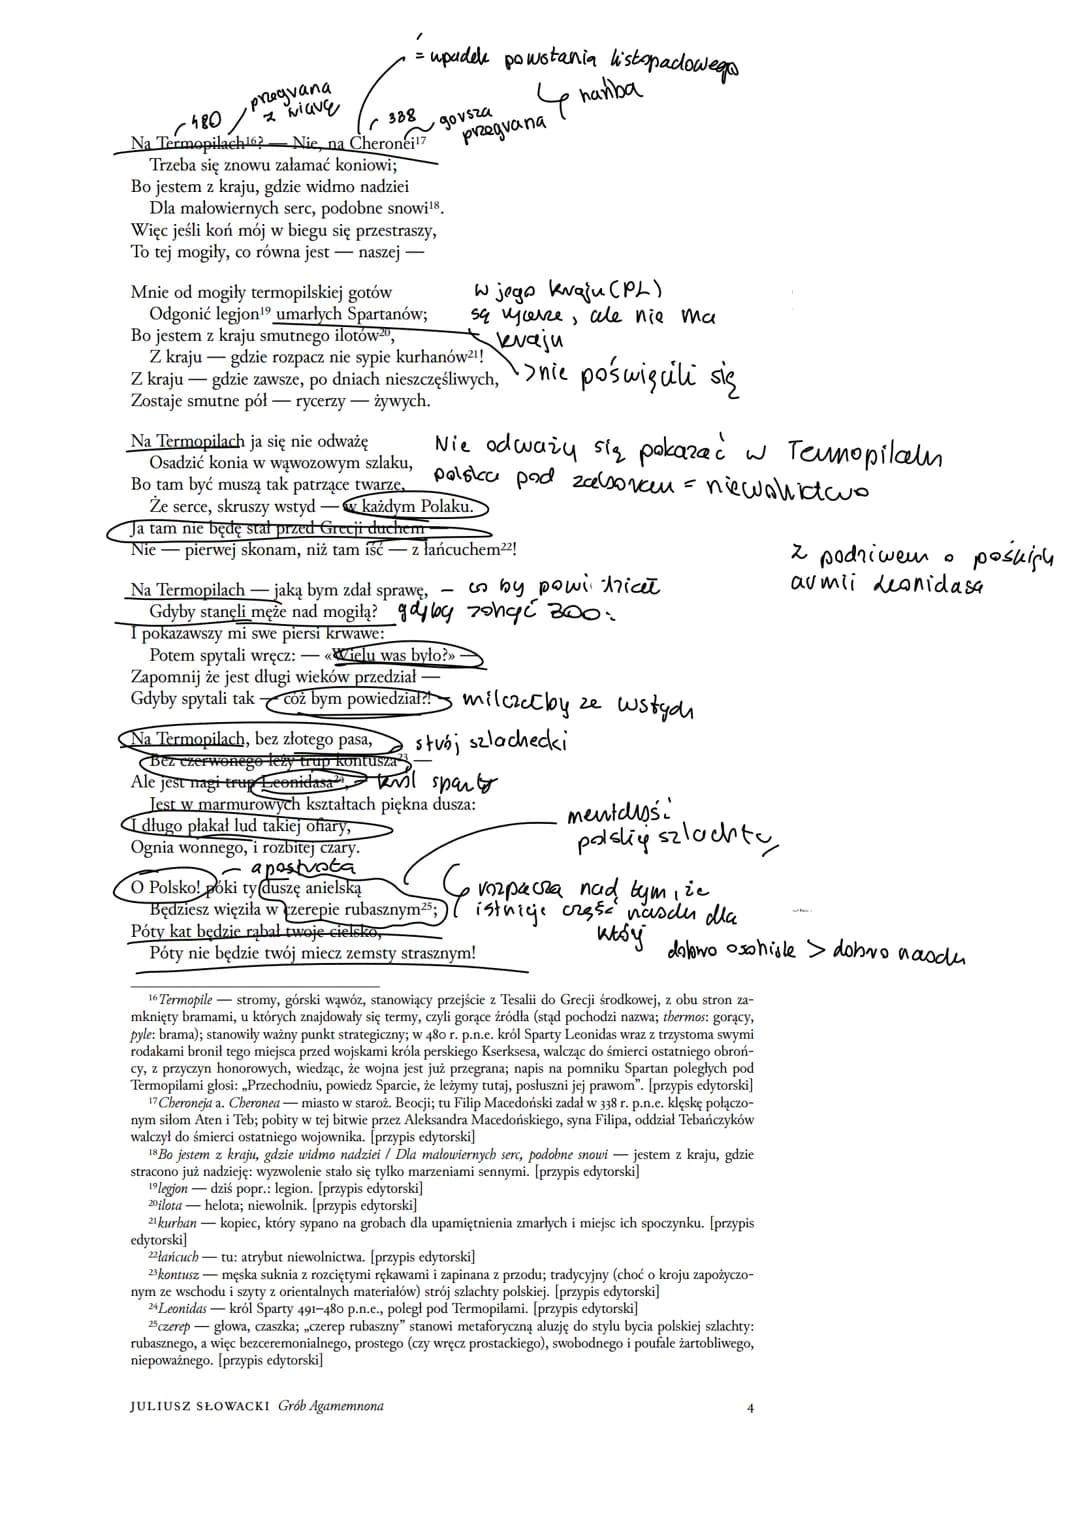 = upadek powstania listopadowego
↳ hańba
480
przegrana z wiarą
338
gorsza przegrana
Na Termopilach¹⁶? — Nie, na Cheronei¹⁷
Trzeba się znowu załamać koniowi;
Bo jestem z kraju, gdzie widmo nadziei
Dla małowiernych serc, podobne snowi¹⁸.
Więc jeśli koń mój w biegu się przestraszy,
To tej mogiły, co równa jest — naszej —
Mnie od mogiły termopilskiej gotów
Odgonić legjon¹⁹ umarłych Spartanów;
Bo jestem z kraju smutnego ilotów²⁰,
Z kraju — gdzie rozpacz nie sypie kurhanów²¹!
Z kraju — gdzie zawsze, po dniach nieszczęśliwych,
Zostaje smutne pół — rycerzy — żywych.
w jego kraju (PL)
są rycerze, ale nie ma
kraju
> nie poświęcili się
Na Termopilach ja się nie odważę
Osadzić konia w wąwozowym szlaku,
Bo tam być muszą tak patrzące twarze,
Że serce, skruszy wstyd — w każdym Polaku.
Ja tam nie będę stał przed Grecji duchem —
Nie — pierwej skonam, niż tam iść — z łańcuchem²²!
Nie odważy się pokazać w Termopilach
polska pod zaborem = niewolnictwo
z podziwem o
armii Leonidasa
Na Termopilach — jaką bym zdał sprawę,
Gdyby stanęli męże nad mogiłą?
I pokazawszy mi swe piersi krwawe:
Potem spytali wręcz: — «Wielu was było?» —
Zapomnij że jest długi wieków przedział —
Gdyby spytali tak — cóż bym powiedział?!
– co by powiedział
gdyby 300:
milczałby ze wstydu
Na Termopilach, bez złotego pasa,
Bez czerwonego leży trup kontusza²³,—
Ale jest nagi trup Leonidasa²⁴,
Jest w marmurowych kształtach piękna dusza:
I długo płakał lud takiej ofiary,
Ognia wonnego, i rozbitej czary.
strój szlachecki
król sparty
mentalność
polskiej szlachty
apostrofa
O Polsko! póki ty duszę anielską
Będziesz więziła w czerepie rubasznym²⁵;
Póty kat będzie rąbał twoje cielsko,
Póty nie będzie twój miecz zemsty strasznym!
rozpacza nad tym, że
istnieje część narodu dla
który
dobro osobiste > dobro narodu
¹⁶Termopile — stromy, górski wąwóz, stanowiący przejście z Tesalii do Grecji środkowej, z obu stron za-
mknięty bramami, u których znajdowały się termy, czyli gorące źródła (stąd pochodzi nazwa; thermos: gorący,
pyle: brama); stanowiły ważny punkt strategiczny; w 480 r. p.n.e. król Sparty Leonidas wraz z trzystoma swymi
rodakami bronił tego miejsca przed wojskami króla perskiego Kserksesa, walcząc do śmierci ostatniego obroń-
cy, z przyczyn honorowych, wiedząc, że wojna jest już przegrana; napis na pomniku Spartan poległych pod
Termopilami głosi: „Przechodniu, powiedz Sparcie, że leżymy tutaj, posłuszni jej prawom”. [przypis edytorski]
¹⁷Cheroneja a. Cheronea — miasto w staroż. Beocji; tu Filip Macedoński zadał w 338 r. p.n.e. klęskę połączo-
nym siłom Aten i Teb; pobity w tej bitwie przez Aleksandra Macedońskiego, syna Filipa, oddział Tebańczyków
walczył do śmierci ostatniego wojownika. [przypis edytorski]
¹⁸Bo jestem z kraju, gdzie widmo nadziei / Dla małowiernych serc, podobne snowi — jestem z kraju, gdzie
stracono już nadzieję: wyzwolenie stało się tylko marzeniami sennymi. [przypis edytorski]
¹⁹legjon — dziś popr.: legion. [przypis edytorski]
²⁰ilota — helota; niewolnik. [przypis edytorski]
²¹kurhan — kopiec, który sypano na grobach dla upamiętnienia zmarłych i miejsc ich spoczynku. [przypis
edytorski]
²²łańcuch — tu: atrybut niewolnictwa. [przypis edytorski]
²³kontusz — męska suknia z rozciętymi rękawami i zapinana z przodu; tradycyjny (choć o kroju zapożyczo-
nym ze wschodu i szyty z orientalnych materiałów) strój szlachty polskiej. [przypis edytorski]
²⁴Leonidas — król Sparty 491–480 p.n.e., poległ pod Termopilami. [przypis edytorski]
²⁵czerep — głowa, czaszka; „czerep rubaszny” stanowi metaforyczną aluzję do stylu bycia polskiej szlachty:
rubasznego, a więc bezceremonialnego, prostego (czy wręcz prostackiego), swobodnego i poufale żartobliwego,
niepoważnego. [przypis edytorski]
JULIUSZ SŁOWACKI Grób Agamemnona 4